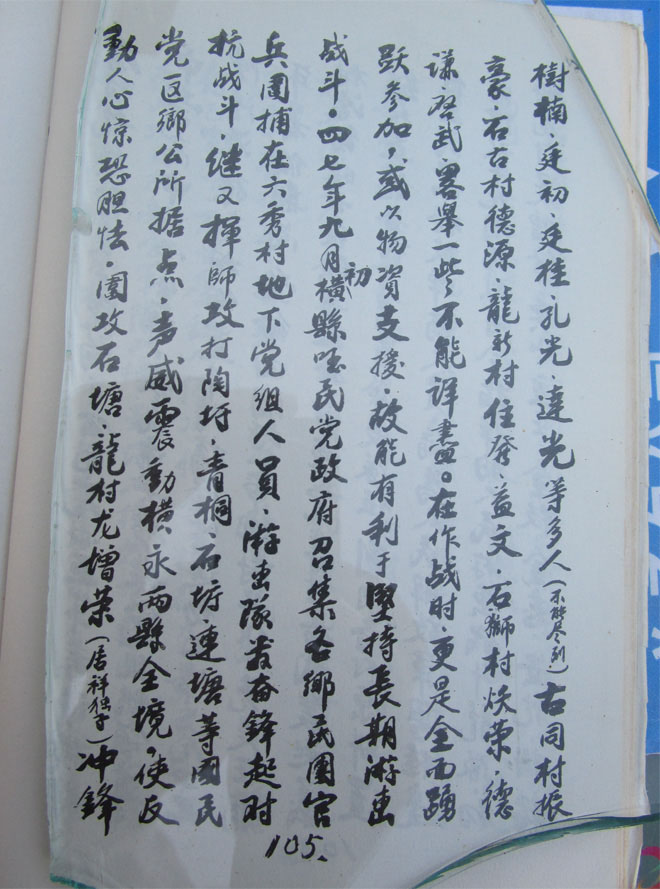 樹楠、廷初、廷桂、孔光、達光等多人（不能尽列）古同村振
豪、石古村德源、龍新村住發、益文、石獅村焕荣、德
谦、啓武、畧舉一些，不能詳盡。在作战时，更是全面踴
跃参加，或以物資支援，故能有利于堅持長期游击
战斗。四七年九月初橫縣國民党政府召集各鄉民團官
兵圍捕在六秀村地下党组人員，游击隊发奋鋒起对
抗战斗，继又揮師攻打陶圩，青桐，石塘，連塘等國民
党区鄉公所据点，声威震動横永两縣全境，使反
動人心惊恐胆怯，圍攻石塘，龍村龙增荣（居祥独子）冲鋒
105.